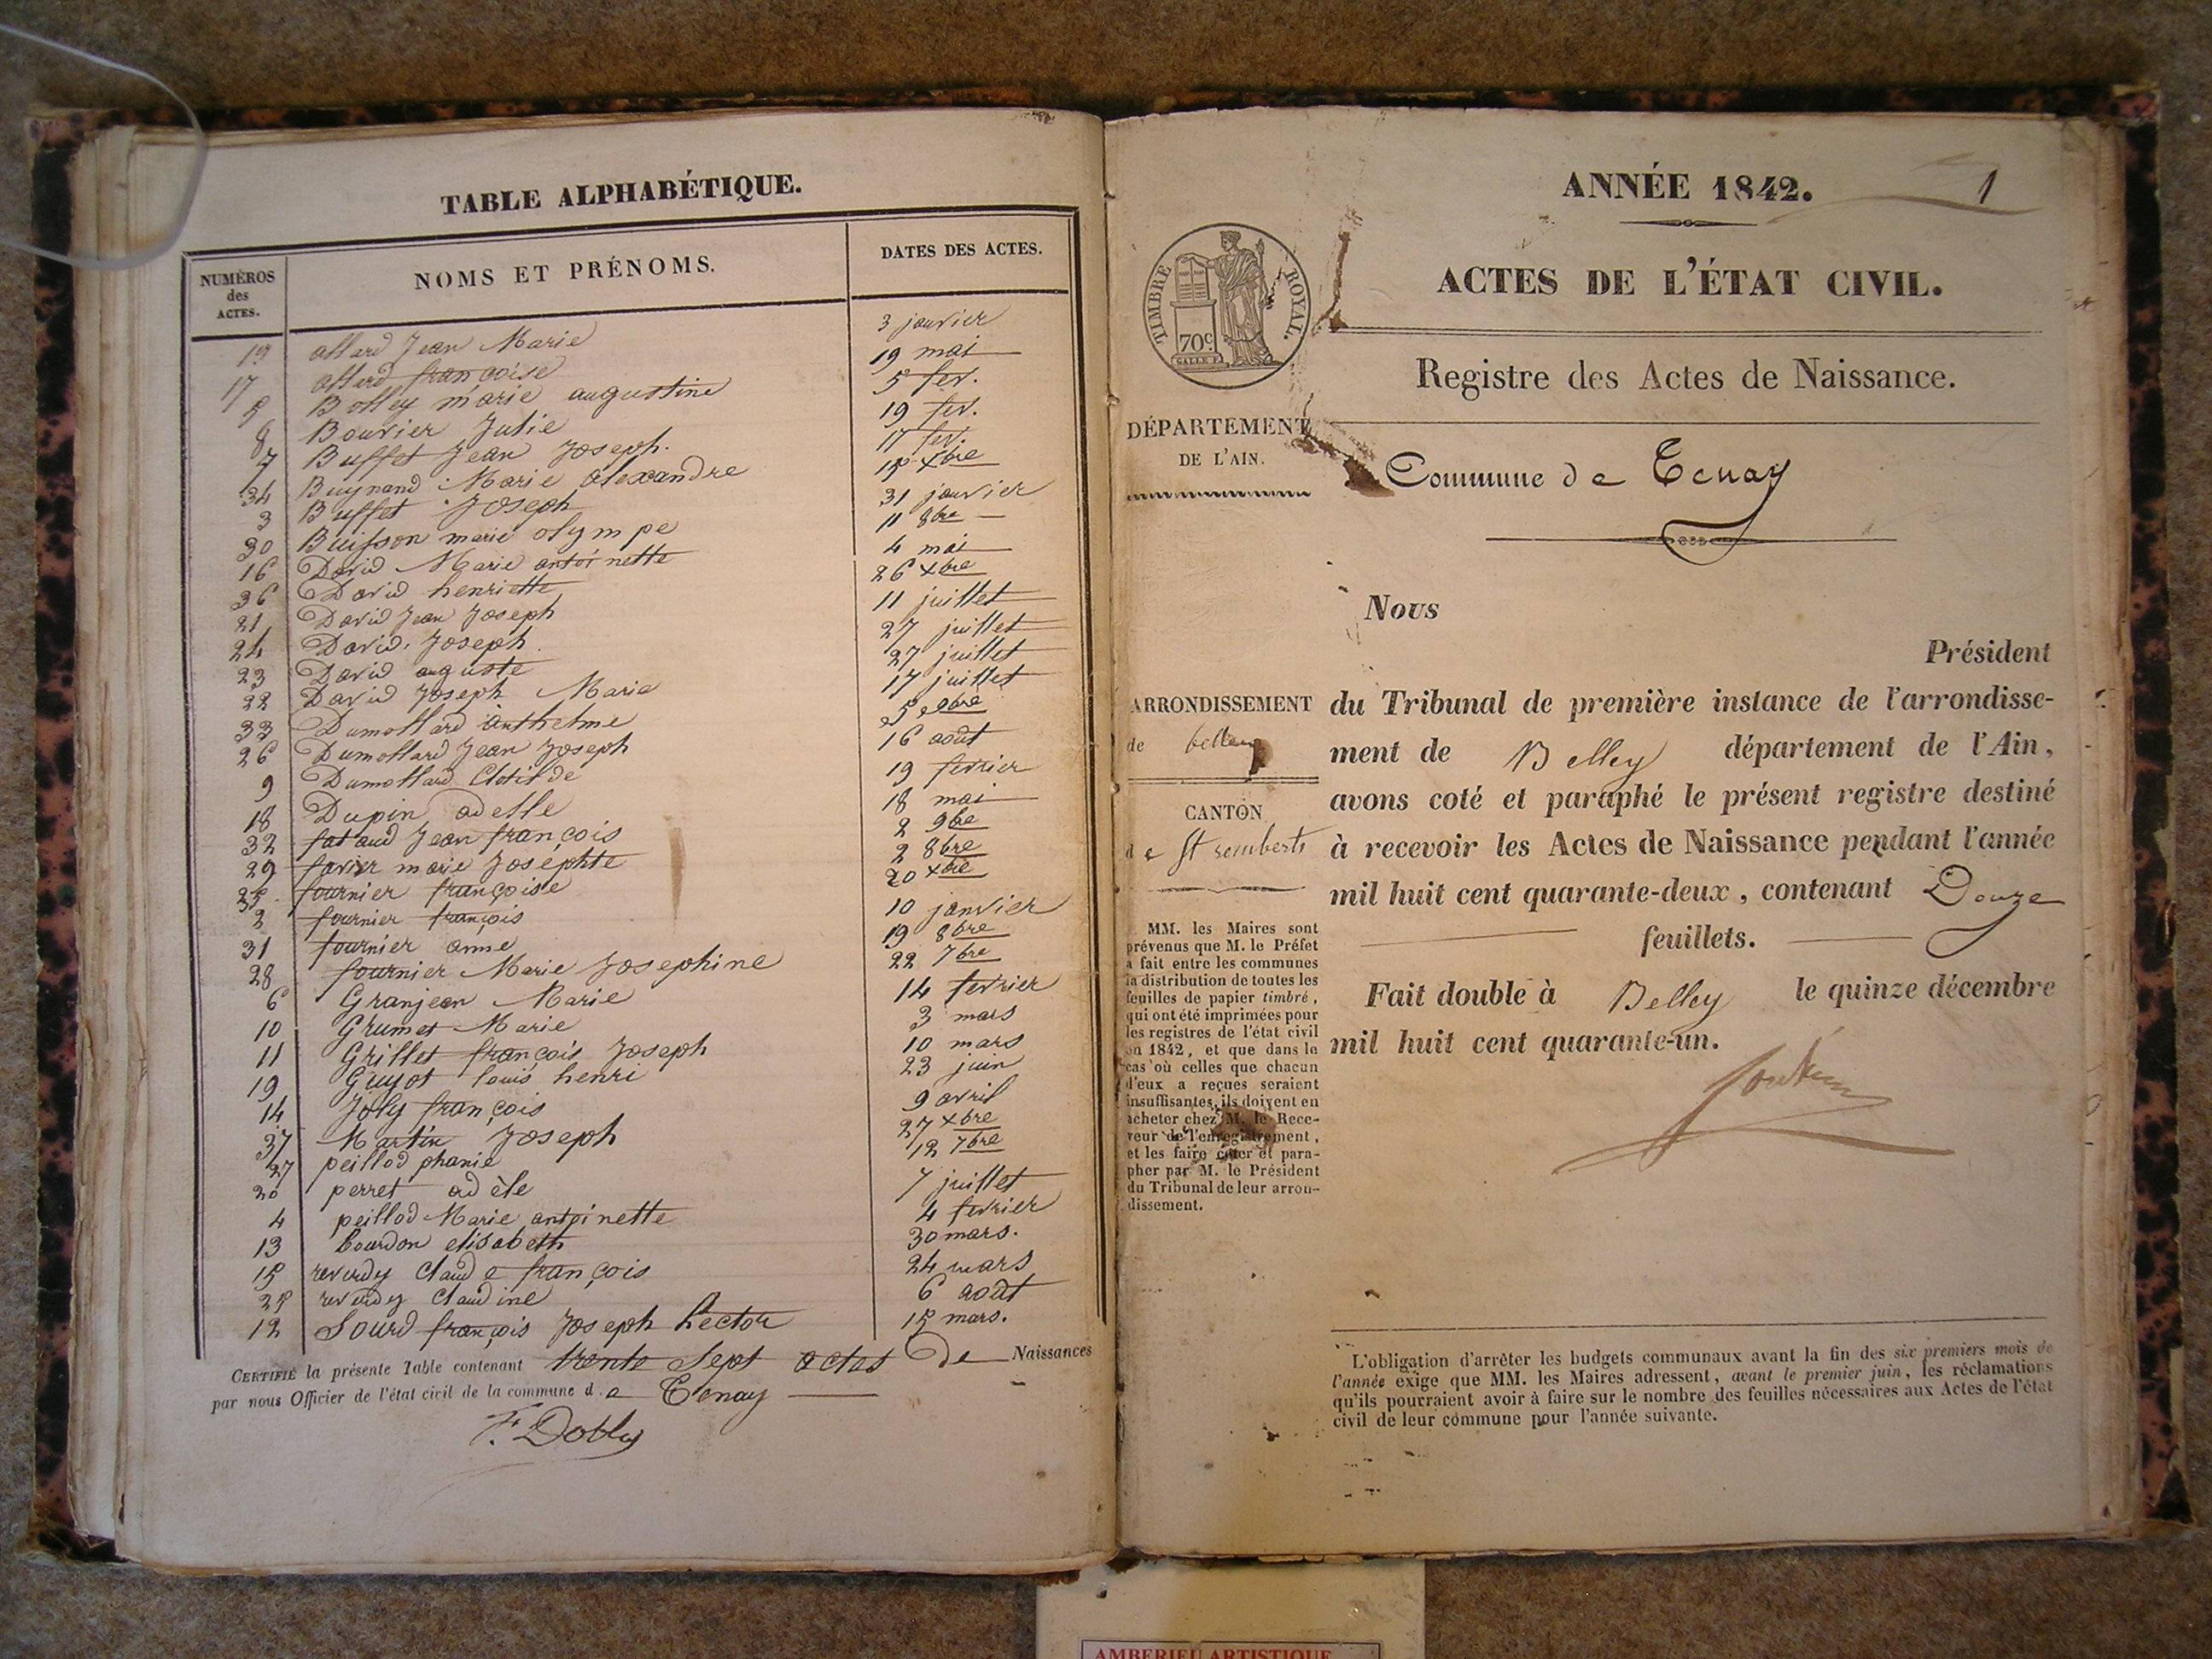 TABLE ALPHABÉTIQUE.
NUMÉROS des ACTES.
NOMS ET PRÉNOMS.
DATES DES ACTES.
19 allard Jean Marie 3 janvier
17 allard françoise 19 mai
5 Bolley marie augustine 5 fev.
8 Bouvier Julie 19 fev.
7 Buffet Jean Joseph. 17 fev.
34 Buynand Marie alexandre 15 Xbre
3 Buffet Joseph 31 janvier
30 Buisson marie olympe 11 8bre
16 David Marie antoinette 4 mai
36 David henriette 26 Xbre
21 David Jean Joseph 11 juillet
24 David Joseph 27 juillet
23 David auguste 27 juillet
22 David Joseph Marie 17 juillet
33 Dumollard anthelme 25 9bre
26 Dumollard Jean Joseph 16 août
9 Dumollard Clotilde 19 fevrier
18 Dupin adelle 18 mai
32 fataud Jean françois 2 9bre
29 favier marie Josephte 2 8bre
35 fournier françoise 20 Xbre
2 fournier françois 10 janvier
31 fournier anne 19 8bre
28 fournier Marie Josephine 22 7bre
6 Granjean Marie 14 fevrier
10 Grumet Marie 3 mars
11 Grillet françois Joseph 10 mars
19 Guyot louis henri 23 juin
14 Joly françois 9 avril
37 Martin Joseph 27 Xbre
27 peillod phanie 12 7bre
20 perret adèle 7 juillet
4 peillod Marie antoinette 4 fevrier
13 bourdon elisabeth 30 mars.
15 reverdy Claude françois 24 mars
25 reverdy Claudine 6 août
12 Sourd françois Joseph hector 15 mars.
CERTIFIÉ la présente Table contenant trente Sept actes de Naissances
par nous Officier de l'état civil de la commune de Tenay
F. Dobly
ANNÉE 1842. 1
ACTES DE L'ÉTAT CIVIL.
TIMBRE ROYAL.
70c.
Registre des Actes de Naissance.
DÉPARTEMENT
DE L'AIN.
Commune de Tenay
Nous
Président
ARRONDISSEMENT
de belley
CANTON
de St rembert
du Tribunal de première instance de l'arrondisse-
ment de Belley département de l'Ain,
avons coté et paraphé le présent registre destiné
à recevoir les Actes de Naissance pendant l'année
mil huit cent quarante-deux, contenant Douze
feuillets.
Fait double à Belley le quinze décembre
mil huit cent quarante-un.
MM. les Maires sont
prévenus que M. le Préfet
a fait entre les communes
la distribution de toutes les
feuilles de papier timbré,
qui ont été imprimées pour
les registres de l'état civil
en 1842, et que dans le
cas où celles que chacun
d'eux a reçues seraient
insuffisantes, ils doivent en
acheter chez M. le Rece-
veur de l'enregistrement,
et les faire coter et para-
pher par M. le Président
du Tribunal de leur arron-
dissement.
L'obligation d'arrêter les budgets communaux avant la fin des six premiers mois de
l'année exige que MM. les Maires adressent, avant le premier juin, les réclamations
qu'ils pourraient avoir à faire sur le nombre des feuilles nécessaires aux Actes de l'état
civil de leur commune pour l'année suivante.
AMBERIEU ARTISTIQUE